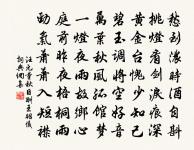 愁到濃時酒自斟
挑燈看劍淚痕深
黃金臺愧少知己
碧玉調將空好音
萬葉秋風孤館夢
一燈夜雨故鄉心
庭前昨夜梧桐雨
勁氣蕭蕭入短襟
汪元量秋日酬王昭儀
詞典網集